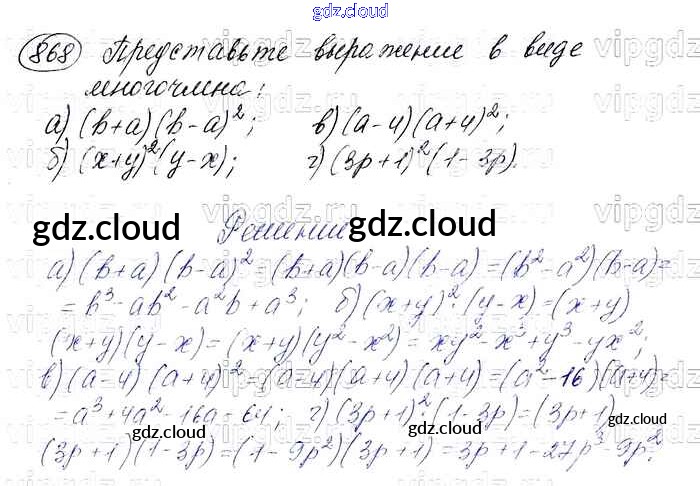 gdz.cloud
868 Представьте выражение в виде
многочлена:
а) (b+a)(b-a)²; в) (a-4)(a+4)²;
б) (x+y)²(y-x); г) (3p+1)²(1-3p).
gdz.cloud Решение gdz.cloud
а) (b+a)(b-a)²=(b+a)(b-a)(b-a)=(b²-a²)(b-a)=
=b³-ab²-a²b+a³; б) (x+y)²·(y-x)=(x+y)
(x+y)(y-x)=(x+y)(y²-x²)=xy²-x³+y³-yx²;
в) (a-4)(a+4)²=(a-4)(a+4)(a+4)=(a²-16)(a+4)=
=a³+4a²-16a-64; г) (3p+1)²·(1-3p)=(3p+1)
gdz.cloud gdz.cloud
(3p+1)(1-3p)=(1-9p²)(3p+1)=3p+1-27p³-9p².
gdz.cloud